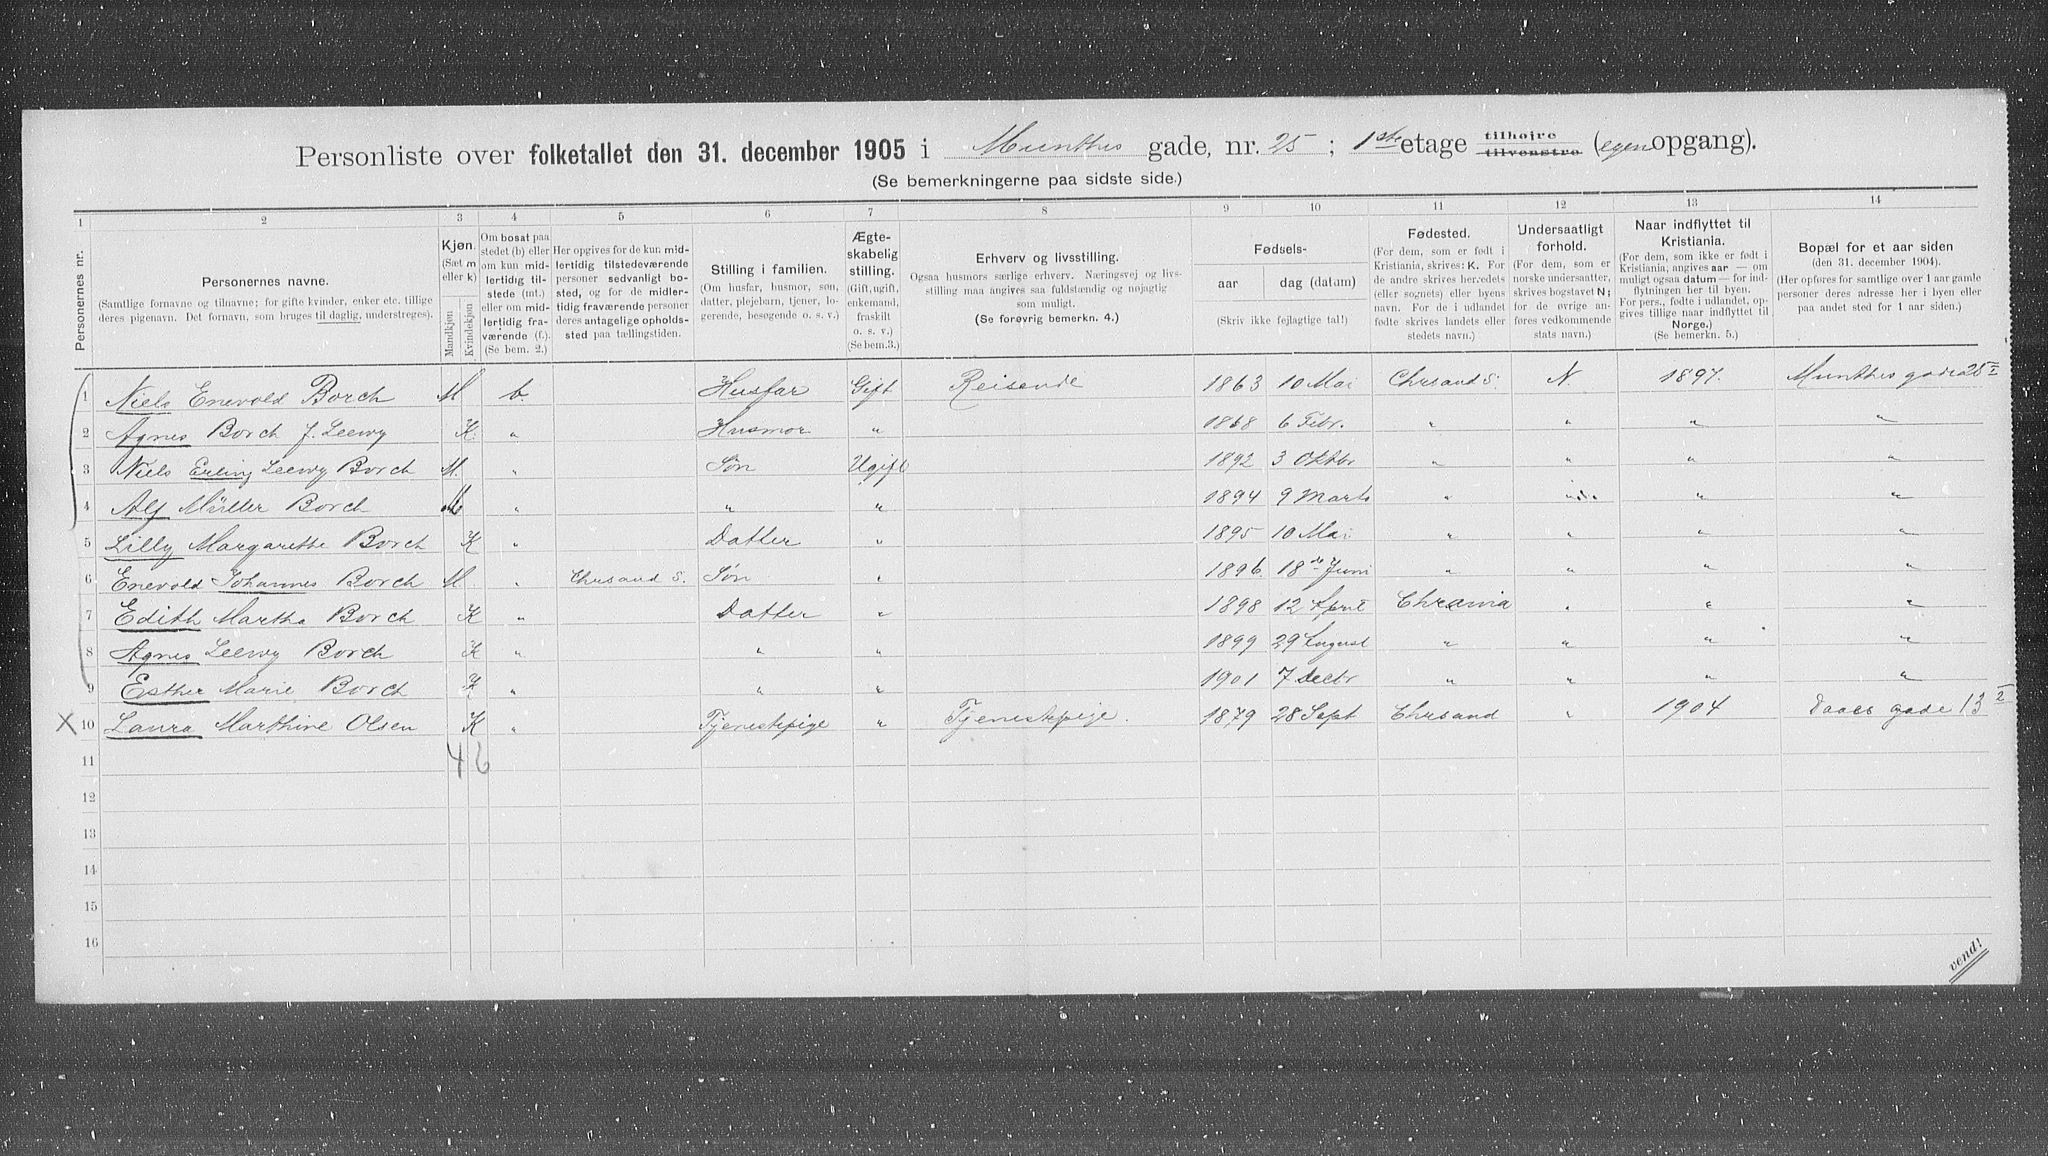 Personliste over folketallet den 31. december 1905 i Munthes gade, nr. 25 ; 1ste etage tilhøire tilvenstre (egen opgang).
(Se bemerkningerne paa sidste side.)
1 2 3 4 5 6 7 8 9 10 11 12 13 14
Personernes nr.
Personernes navne.
(Samtlige fornavne og tilnavne; for gifte kvinder, enker etc. tillige deres pigenavn. Det fornavn, som bruges til daglig, understreges).
Kjøn. (Sæt m eller k)
Mandkjøn
Kvindekjøn
Om bosat paa stedet (b) eller om kun midlertidig tilstede (mt.) eller om midlertidig fraværende (f.) (Se bem. 2.)
Her opgives for de kun midlertidig tilstedeværende personer sedvanlig bosted, og for de midlertidig fraværende personer deres antagelige opholdssted paa tællingstiden.
Stilling i familien.
(Om husfar, husmor, søn, datter, plejebarn, tjener, logerende, besøgende o. s. v.)
Ægteskabelig stilling.
(Gift, ugift, enkemand, fraskilt o. s. v.) (Se bem.3.)
Erhverv og livsstilling.
Ogsaa husmors særlige erhverv. Næringsvej og livsstilling maa angives saa fuldstændig og nøjagtig som muligt.
(Se forøvrig bemerkn. 4.)
Fødsels-
aar dag (datum)
(Skriv ikke fejlagtige tal!)
Fødested.
(For dem, som er født i Kristiania, skrives: K. For de andre skrives herredets (eller sognets) eller byens navn. For de i udlandet fødte skrives landets eller stedets navn.)
Undersaatligt forhold.
(For dem, som er norske undersaatter, skrives bogstavet N; for de øvrige anføres vedkommende stats navn.)
Naar indflyttet til Kristiania.
(For dem, som ikke er født i Kristiania, angives aar — om muligt ogsaa datum — for indflytningen her til byen. For pers., fødte i udlandet, opgives tillige naar indflyttet til Norge.)
(Se bemerkn. 5.)
Bopæl for et aar siden
(den 31. december 1904).
(Her opføres for samtlige over 1 aar gamle personer deres adresse her i byen eller paa andet sted for 1 aar siden.)
1 Niels Enevold Borch M b. Husfar Gift Reisende 1863 10 Mai Chrsand S. N. 1897. Munthes gade 25 I
2 Agnes Borch f. Leewy K. " Husmor " 1868 6 Febr. " " " "
3 Niels Erling Leewy Borch M. " Søn Ugift 1892 3 Oktbr " " " "
4 Alf Müller Borch M " " " 1894 9 Marts " " " "
5 Lilly Margarethe Borch K " Datter " 1895 10 Mai " " " "
6 Enevold Johannes Borch M. " Chrsand S. Søn " 1896. 18de Juni " " " "
7 Edith Martha Borch K " Datter " 1898 12 April Chrania " " "
8 Agnes Leewy Borch K " " " 1899 29 August " " " "
9 Esther Marie Borch K " " " 1901 7 Decbr " " " "
X 10 Laura Marthine Olsen K " Tjenestpige " Tjenestpige. 1879 28 Sept Chrsand " 1904 Daaes gade 13 I
11 4 6
12
13
14
15
16
vend!